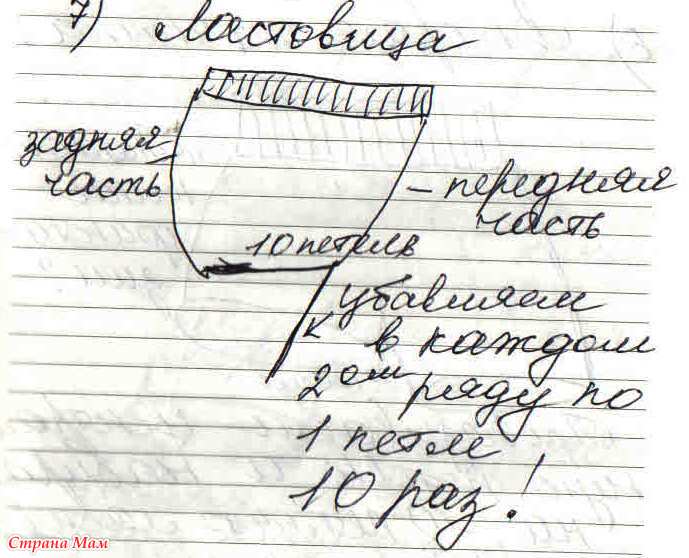 7) Ластовица
задняя
часть
- передняя
часть
10 петель
убавляем
в каждом
2ом ряду по
1 петле
10 раз!
Страна Мам